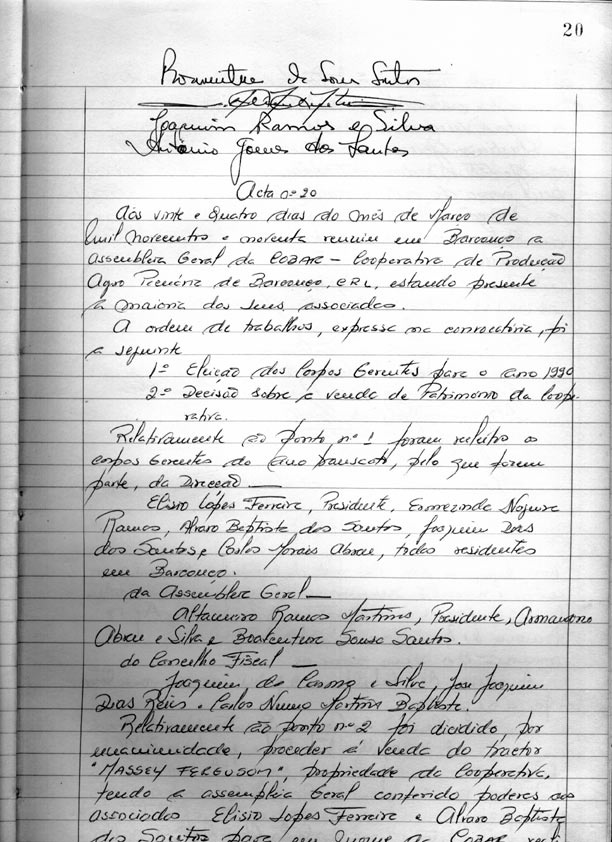 20
Boaventura de Sousa Santos
Joaquim Ramos e Silva
António Gomes dos Santos
Acta nº 20
Aos vinte e quatro dias do mês de Março de
mil novecentro e noventa reuniu em Barcouço a
assembleia Geral da COBAR - Cooperativa de Produção
Agro Pecuária de Barcouço, CRL, estando presente
a maioria dos seus associados.
A ordem de trabalhos, expressa na convocatória, foi
a seguinte
1º Eleição dos Corpos Gerentes para o ano 1990
2º Decisão sobre a venda de Património da Coope-
rativa.
Relativamente ao ponto nº 1 foram reeleitos os
corpos Gerentes do ano transacto, pelo que foram
parte, da Direcção —
Elisio Lopes Ferreira, Presidente, Ermezinda Nogueira
Ramos, Alvaro Baptista dos Santos, Joaquim Dias
dos Santos e Carlos Morais Abreu, todos residentes
em Barcouço.
da Assembleia Geral —
Altamiro Ramos Martins, Presidente, Armandino
Abreu e Silva e Boaventura Sousa Santos.
do Concelho Fiscal —
Joaquim de Ramos e Silva, Jose Joaquim
Dias Reis e Carlos Nuno Martins Baptista.
Relativamente ao ponto nº 2 foi dicidido, por
unanimidade, proceder á venda do tractor
"MASSEY FERGUSOM", propriedade da Cooperativa,
tendo a assembleia Geral conferido poderes aos
associados Elisio Lopes Ferreira e Alvaro Baptista
dos Santos para em nome da COBAR